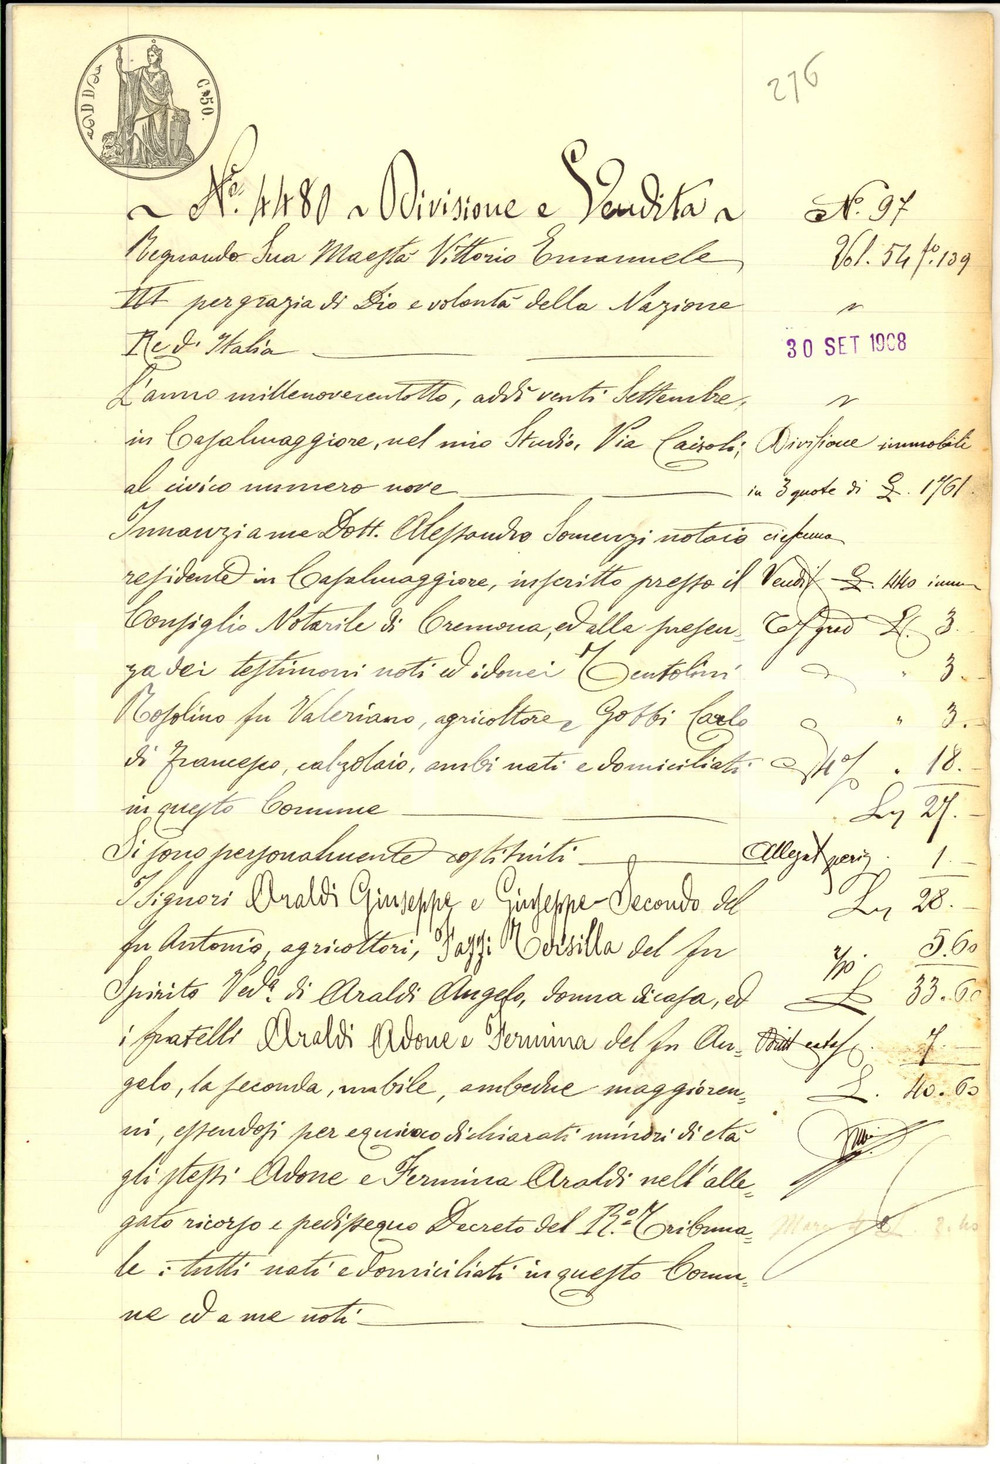 C. 50.
276
~ N.º 4480 ~ Divisione e Vendita ~
Regnando Sua Maestà Vittorio Emanuele
III per grazia di Dio e volontà della Nazione
Re d'Italia
L'anno millenovecentotto, addì venti Settembre,
in Casalmaggiore, nel mio Studio, Via Cairoli,
al civico numero nove
Innanzi a me Dott. Alessandro Somenzi notaio
residente in Casalmaggiore, inscritto presso il
Consiglio Notarile di Cremona, ed alla presen-
za dei testimoni noti ed idonei Gentolini
Rosolino fu Valeriano, agricoltore e Gobbi Carlo
di Francesco, calzolaio, ambi nati e domiciliati
in questo Comune
Si sono personalmente costituiti
I Signori Araldi Giuseppe e Giuseppe-Secondo del
fu Antonio, agricoltori, Fazzi Tersilla del fu
Spirito Ved.ª di Araldi Angelo, donna di casa, ed
i fratelli Araldi Adone e Fermina del fu An-
gelo, la seconda, nubile, ambedue maggioren-
ni, essendosi per equivoco dichiarati minori di età
gli stessi Adone e Fermina Araldi nell'alle-
gato ricorso e pedissequo Decreto del R.º Tribuna-
le : tutti nati e domiciliati in questo Comu-
ne ed a me noti
N. 97
Vol. 54 f.º 139
30 SET 1908
Divisione immobili
in 3 quote di L. 1761
ciascuna
Vendit L. 440 imm
L. 3.
" 3
" 3.
" 18.
27.
Allegat periz. 1
28.
5.60
L 33.60
7.
L. 40.60